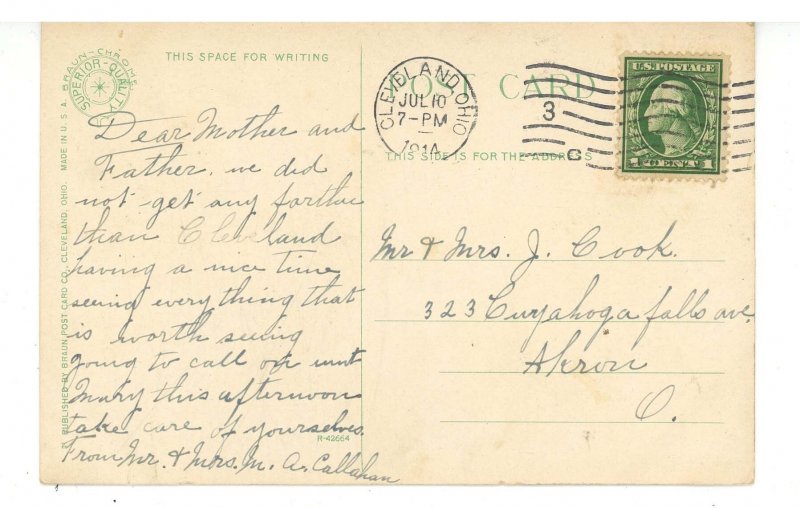 THIS SPACE FOR WRITING
BRAUN-CHROME
SUPERIOR-QUALITY
POST CARD
THIS SIDE IS FOR THE ADDRESS
CLEVELAND, OHIO
JUL 10
7-PM
1914
3
C
U.S. POSTAGE
1 CENT 1
Dear Mother and
Father. we did
not get any farther
than Cleveland
having a nice time
seeing every thing that
is worth seeing
going to call on aunt
Mary this afternoon
take care of yourselves.
From Mr. & Mrs. M. A. Callahan
Mr & Mrs. J. Cook.
323 Cuyahoga falls ave.
Akron
O.
R-42664
PUBLISHED BY BRAUN POST CARD CO., CLEVELAND, OHIO. MADE IN U.S.A.